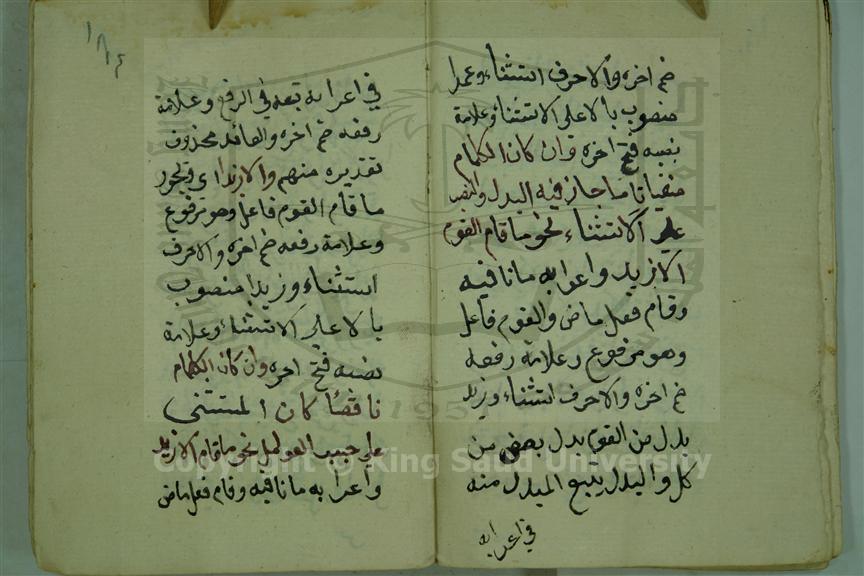 ضم اخره والا حرف استثناء وعمرا
منصوب بالا على الاستثناء وعلامة
نصبه فتح اخره وان كان الكلام
منفيا تاما جاز فيه البدل والنصب
على الاستثناء نحو ما قام القوم
الا زيد واعرابه ما نافية
وقام فعل ماض والقوم فاعل
وهو مرفوع وعلامة رفعه
ضم اخره والا حرف استثناء وزيد
بدل من القوم بدل بعض من
كل والبدل يتبع المبدل منه
في اعرابه
١٨٤
في اعرابه تبعه في الرفع وعلامة
رفعه ضم اخره والعائد محذوف
تقديره منهم والا زيدا اي ويجوز
ما قام القوم فاعل وهو مرفوع
وعلامة رفعه ضم اخره والا حرف
استثناء وزيدا منصوب
بالا على الاستثناء وعلامة
نصبه فتح اخره وان كان الكلام
ناقصا كان المستثنى
على حسب العوامل نحو ما قام الا زيد
واعرابه ما نافية وقام فعل ماض
Copyright © King Saud University
1957